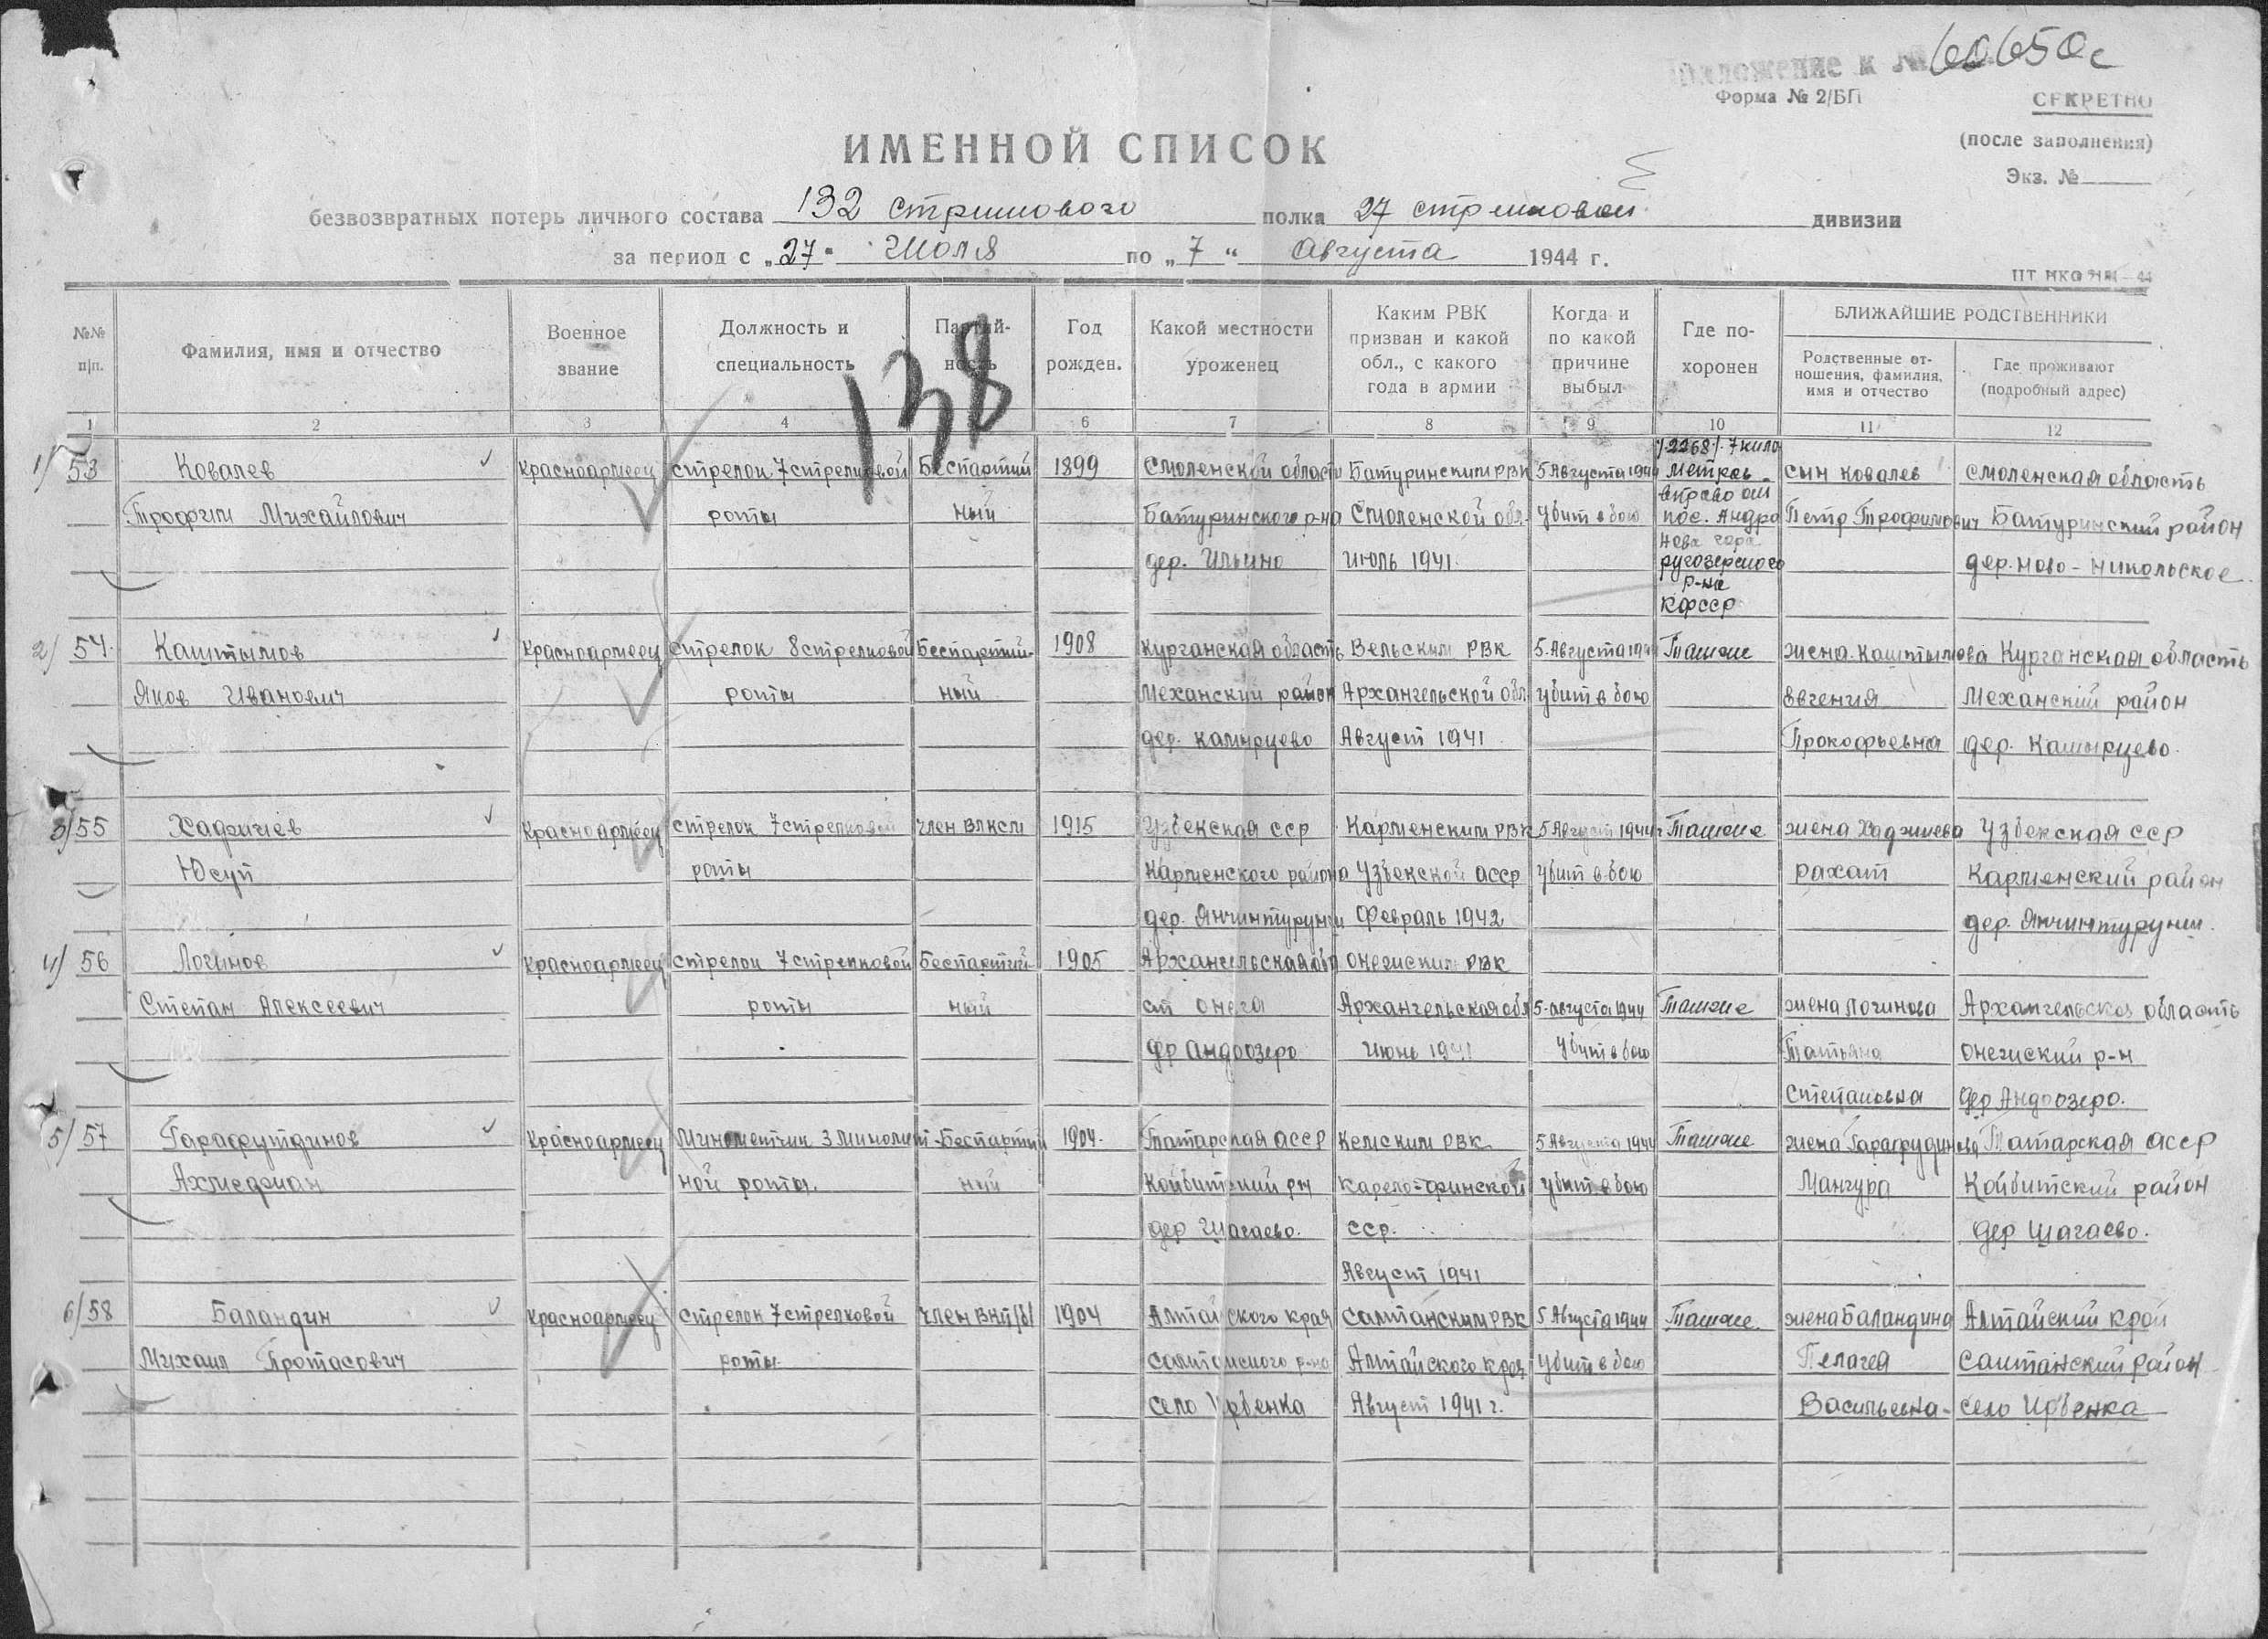 Приложение к № 60650с
Форма № 2/БП
СЕКРЕТНО
(после заполнения)
Экз. №
ИМЕННОЙ СПИСОК
безвозвратных потерь личного состава 132 стрелкового полка 27 стрелковой дивизии
за период с „27“ Июля по „7“ Августа 1944 г.
138
№№ п|п. Фамилия, имя и отчество Военное звание Должность и специальность Партийность Год рожден. Какой местности уроженец Каким РВК призван и какой обл., с какого года в армии Когда и по какой причине выбыл Где похоронен БЛИЖАЙШИЕ РОДСТВЕННИКИ Родственные отношения, фамилия, имя и отчество Где проживают (подробный адрес)
1 2 3 4 6 7 8 9 10 11 12
1/ 53 Ковалев Красноармеец стрелок 7 стрелковой Беспартий 1899 Смоленской области Батуринским РВК 5 Августа 1944 /.2268/. 7 кило метров сын Ковалев Смоленская область
Трофим Михайлович роты ный Батуринского р-на Смоленской обл. убит в бою вправо от пос. Андро Петр Трофимович Батуринский район
дер. Ильино Июль 1941. нова гора ругозерского дер. Ново-Никольское
р-на
КФССР
2/ 54. Каштымов Красноармеец стрелок 8 стрелковой Беспартий- 1908 Курганская область Вельским РВК 5 Августа 1944 Там же жена Каштымова Курганская область
Яков Иванович роты ный Механский район Архангельской обл. убит в бою Евгения Механский район
дер. Камырцево Август 1941 Прокофьевна дер. Камырцево.
3/ 55 Хаджиев Красноармеец стрелок 7 стрелковой член ВЛКСМ 1915 Узбекская ССР Карменским РВК 5 Август 1944 г Там же жена Хаджиева Узбекская ССР
Юсуп роты Карменского района Узбекской АССР убит в бою рахат Карменский район
дер. Февраль 1942 дер.
4/ 56 Логинов Красноармеец стрелок 7 стрелковой Беспартий- 1905 Архангельская обл Онегиским РВК
Степан Алексеевич роты ный ст Онега Архангельская обл 5-августа 1944 Там же жена Логинова Архангельская область
др Андоозеро Июнь 1941 убит в бою Татьяна Онегиский р-н
Степановна дер Андоозеро.
5/ 57 Гарафутдинов Красноармеец Минометчик 3 миномет- Беспартий 1904. Татарская АССР Кемским РВК 5 Августа 1944 Там же жена Гарафудинова Татарская АССР
Ахмеджан ной роты. ный Койбитский рн Карело-финской убит в бою Мангура Койбитский район
дер Шагаево. ССР. дер Шагаево.
Август 1941
6/ 58 Баландин Красноармеец стрелок 7 стрелковой член ВКП/б/ 1904 Алтайского края Салтанским РВК 5 Августа 1944 Там же. жена Баландина Алтайский край
Михаил Протасович роты. Салтанского р-на Алтайского края убит в бою Пелагея Салтанский район
село Урбенка Август 1941 г. Васильевна- село Ирбенка